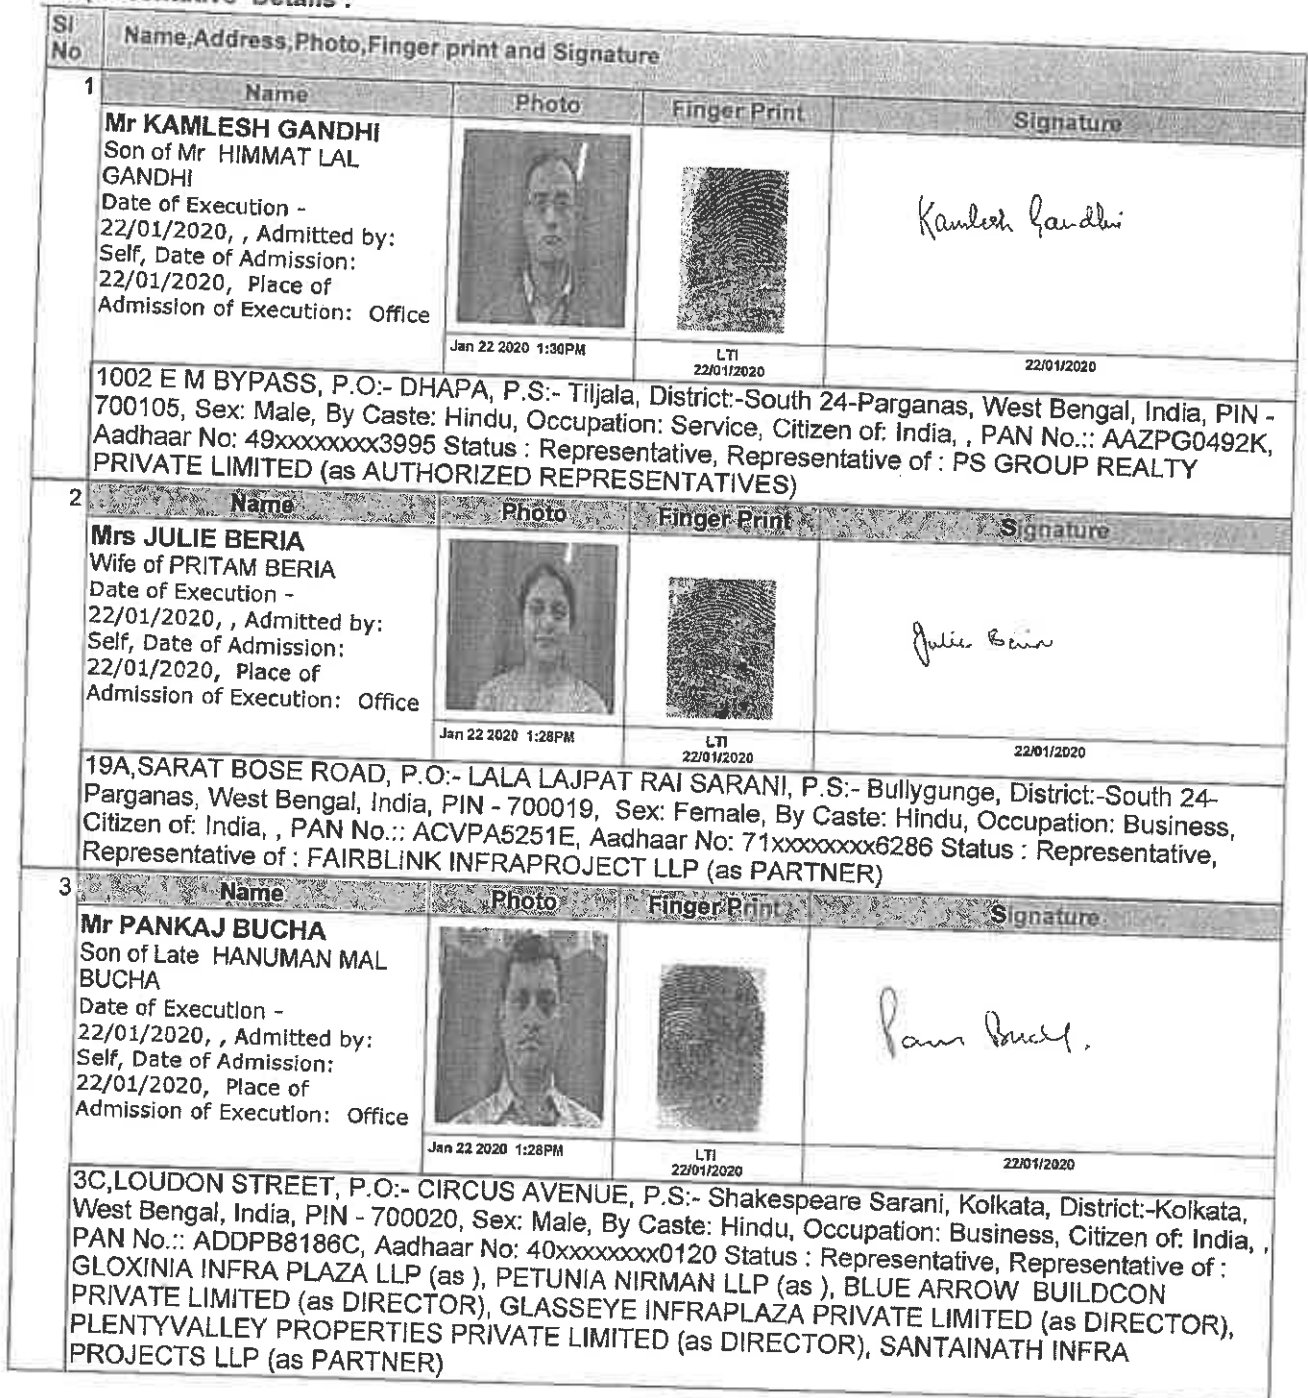 Details :
SI No
Name,Address,Photo,Finger print and Signature
1
Name
Photo
Finger Print
Signature
Mr KAMLESH GANDHI
Son of Mr HIMMAT LAL
GANDHI
Date of Execution -
22/01/2020, , Admitted by:
Self, Date of Admission:
22/01/2020, Place of
Admission of Execution: Office
Kamlesh Gandhi
Jan 22 2020 1:30PM
LTI
22/01/2020
22/01/2020
1002 E M BYPASS, P.O:- DHAPA, P.S:- Tiljala, District:-South 24-Parganas, West Bengal, India, PIN -
700105, Sex: Male, By Caste: Hindu, Occupation: Service, Citizen of: India, , PAN No.:: AAZPG0492K,
Aadhaar No: 49xxxxxxxx3995 Status : Representative, Representative of : PS GROUP REALTY
PRIVATE LIMITED (as AUTHORIZED REPRESENTATIVES)
2
Name
Photo
Finger Print
Signature
Mrs JULIE BERIA
Wife of PRITAM BERIA
Date of Execution -
22/01/2020, , Admitted by:
Self, Date of Admission:
22/01/2020, Place of
Admission of Execution: Office
Julie Beria
Jan 22 2020 1:28PM
LTI
22/01/2020
22/01/2020
19A,SARAT BOSE ROAD, P.O:- LALA LAJPAT RAI SARANI, P.S:- Bullygunge, District:-South 24-
Parganas, West Bengal, India, PIN - 700019, Sex: Female, By Caste: Hindu, Occupation: Business,
Citizen of: India, , PAN No.:: ACVPA5251E, Aadhaar No: 71xxxxxxxx6286 Status : Representative,
Representative of : FAIRBLINK INFRAPROJECT LLP (as PARTNER)
3
Name
Photo
Finger Print
Signature
Mr PANKAJ BUCHA
Son of Late HANUMAN MAL
BUCHA
Date of Execution -
22/01/2020, , Admitted by:
Self, Date of Admission:
22/01/2020, Place of
Admission of Execution: Office
Jan 22 2020 1:28PM
LTI
22/01/2020
22/01/2020
3C,LOUDON STREET, P.O:- CIRCUS AVENUE, P.S:- Shakespeare Sarani, Kolkata, District:-Kolkata,
West Bengal, India, PIN - 700020, Sex: Male, By Caste: Hindu, Occupation: Business, Citizen of: India, ,
PAN No.:: ADDPB8186C, Aadhaar No: 40xxxxxxxx0120 Status : Representative, Representative of :
GLOXINIA INFRA PLAZA LLP (as ), PETUNIA NIRMAN LLP (as ), BLUE ARROW BUILDCON
PRIVATE LIMITED (as DIRECTOR), GLASSEYE INFRAPLAZA PRIVATE LIMITED (as DIRECTOR),
PLENTYVALLEY PROPERTIES PRIVATE LIMITED (as DIRECTOR), SANTAINATH INFRA
PROJECTS LLP (as PARTNER)